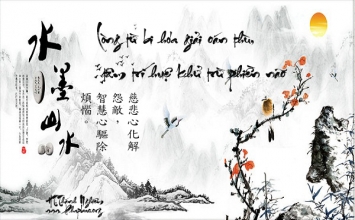 水墨山水
Lòng từ bi hóa giải oán thù
Tâm trí huệ khử trừ phiền não
慈悲心化解
怨敵，
智慧心驅除
煩惱。